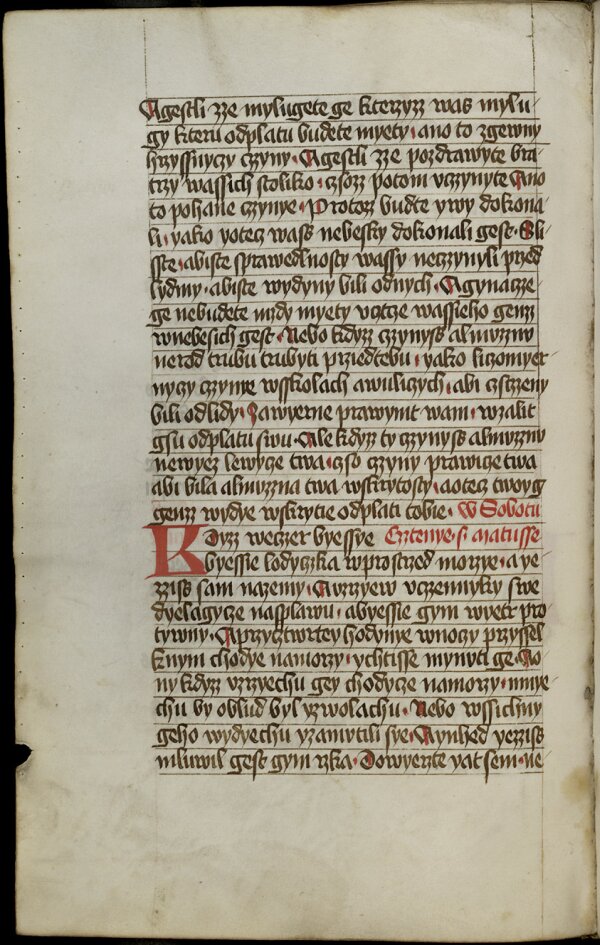 Agestli zze mylugete ge kterzyz was mylu-
gy kteru odplatu budete myety ano to zgewny
hrzyssnyczy czyny. Agestli zze pozdrawyte bra-
trzy wassich stoliko czsoz potom vczynyte Ano
to pohane czynye. Protoz budte ywy dokona-
li yako yotecz wass nebesky dokonali gest. Sli-
sste abiste sprawedlnosty wassy neczynyli przed
lydmy abiste wydyny bili odnych. Agynacze-
ge nebudete mzdy myety votcze wassieho genz
wnebesich gest. Nebo kdyz czynyss almuznu
nerod trubu trubyti prziedtebu yako liczomyer-
nyczy czynie wsskolach awuliczych abi cztzeny
bili odlidy Zawyerne prawymt wam wzalit
gsu odplatu swu. Ale kdyz ty czynyss almuznu
newyez lewycze twa czso czyny prawicze twa
abi bila almuzna twa wskrytosty aotecz twoyg
genz wydye wskrytie odplati tobie. W Sobotu
Kdyzz weczer byessye Cztenye s. Matusse
byessie lodyczka wprostrzed morzye a ye-
zziss sam nazemy. Auzrzyew vczennyky swe
dyelagycze nasplawu abyessie gym wyetr pro-
tywny. Aprzycztwrtey hodynye wnoczy przyssel
knym chodye namorzy ychtisse mynuti ge. Ao-
ny kdyz vzrzyechu gey chodycze namorzy mnye-
chu by oblud byl yzwolachu. Nebo wssichny
geho wydyechu yzamutili sye. Aynhed yezziss
mluwil gest gym rzka. Dowyerzte yat sem ne-